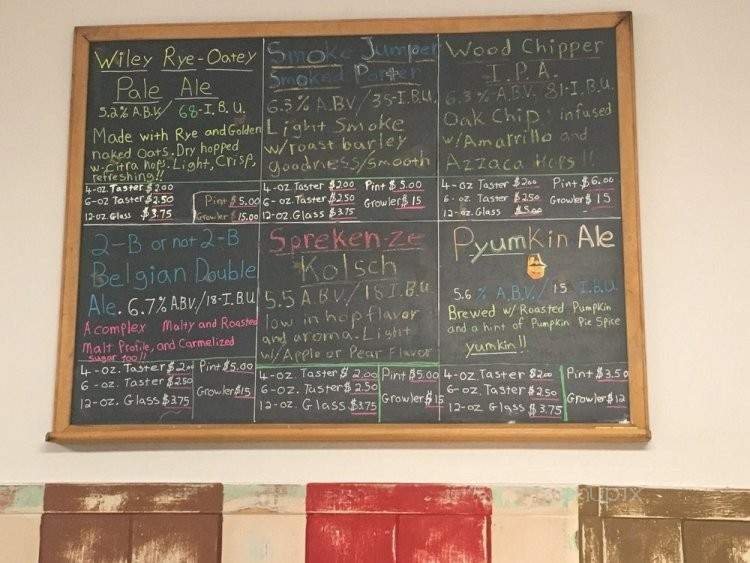 Wiley Rye-Oatey
Pale Ale
5.2% A.B.V. / 68-I.B.U.
Made with Rye and Golden
naked Oats. Dry hopped
w-Citra hops. Light, Crisp,
refreshing!!
4-oz. Taster $2.00
6-oz Taster $2.50
12-oz. Glass $3.75
Pint $5.00
Growler $15.00
Smoke Jumper
Smoked Porter
6.3% A.B.V / 35-I.B.U.
Light Smoke
w/roast barley
goodness/smooth
4-oz Taster $2.00
6-oz Taster $2.50
12-oz. Glass $3.75
Pint $5.00
Growler $15
Wood Chipper
I.P.A.
6.3% A.B.V. 81-I.B.U.
Oak Chip infused
w/Amarrillo and
Azzaca Hops!!
4-oz Taster $2.00
6-oz Taster $2.50
12-oz. Glass $5.00
Pint $6.00
Growler $15
2-B or not 2-B
Belgian Double
Ale. 6.7% A.B.V/18-I.B.U
A complex Malty and Roasted
Malt Profile, and Carmelized
sugar too!!
4-oz. Taster $2.00
6-oz. Taster $2.50
12-oz. Glass $3.75
Pint $5.00
Growler $15
Spreken-ze
Kolsch
5.5 A.B.V./18 I.B.U
low in hop flavor
and aroma. Light
w/ Apple or Pear Flavor
4-oz. Taster $2.00
6-oz. Taster $2.50
12-oz Glass $3.75
Pint $5.00
Growler $15
PyumKin Ale
5.6% A.B.V./15 I.B.U
Brewed w/ Roasted Pumpkin
and a hint of Pumpkin Pie Spice
yumkin!!
4-oz Taster $2.00
6-oz. Taster $2.50
12-oz Glass $3.75
Pint $3.50
Growler $12